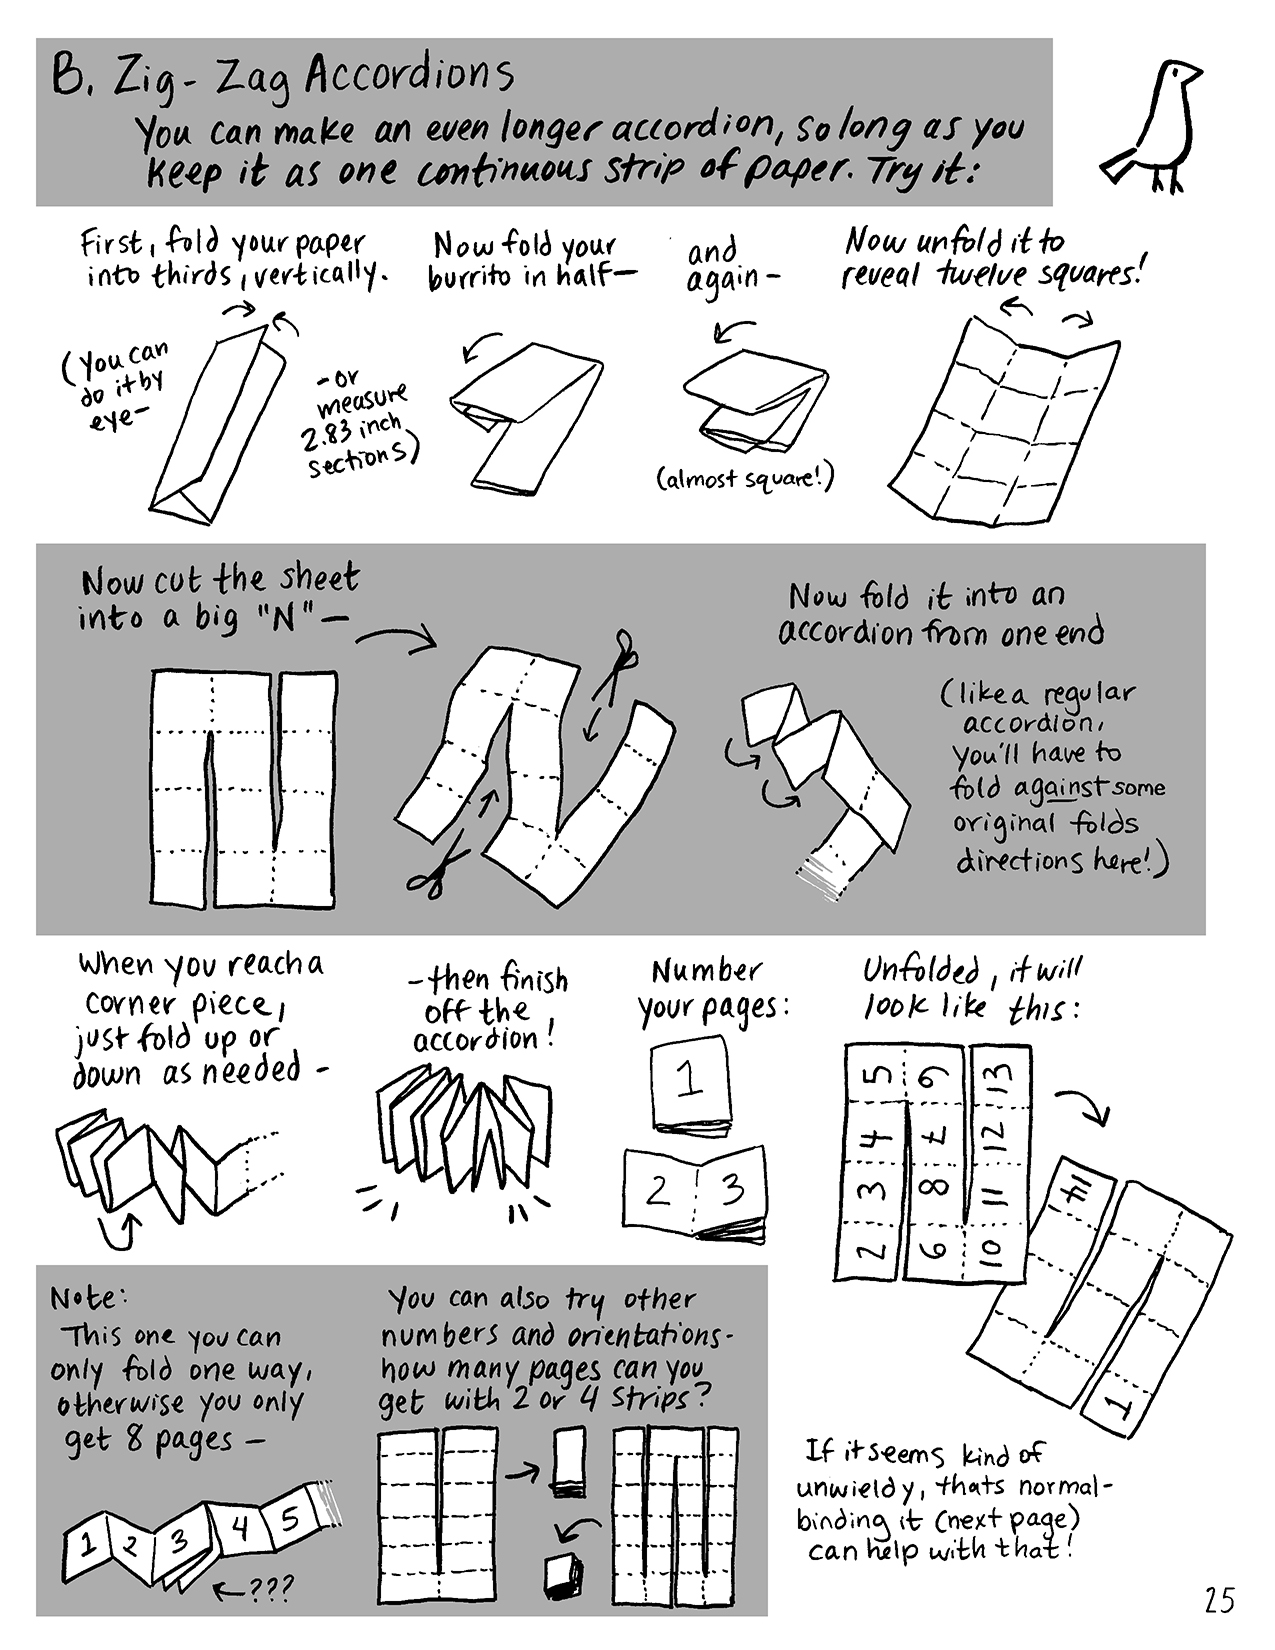 B. Zig-Zag Accordions
You can make an even longer accordion, so long as you
keep it as one continuous strip of paper. Try it:
First, fold your paper
into thirds, vertically.
(You can
do it by
eye-
-or
measure
2.83 inch
sections)
Now fold your
burrito in half-
and
again-
(almost square!)
Now unfold it to
reveal twelve squares!
Now cut the sheet
into a big "N"-
Now fold it into an
accordion from one end
(like a regular
accordion,
you'll have to
fold against some
original folds
directions here!)
When you reach a
corner piece,
just fold up or
down as needed -
-then finish
off the
accordion!
Number
your pages:
1
2 3
Unfolded, it will
look like this:
5 6 13
4 7 12
3 8 11
2 9 10
14
1
Note:
This one you can
only fold one way,
otherwise you only
get 8 pages-
1 2 3 4 5
???
You can also try other
numbers and orientations-
how many pages can you
get with 2 or 4 strips?
If it seems kind of
unwieldy, thats normal-
binding it (next page)
can help with that!
25